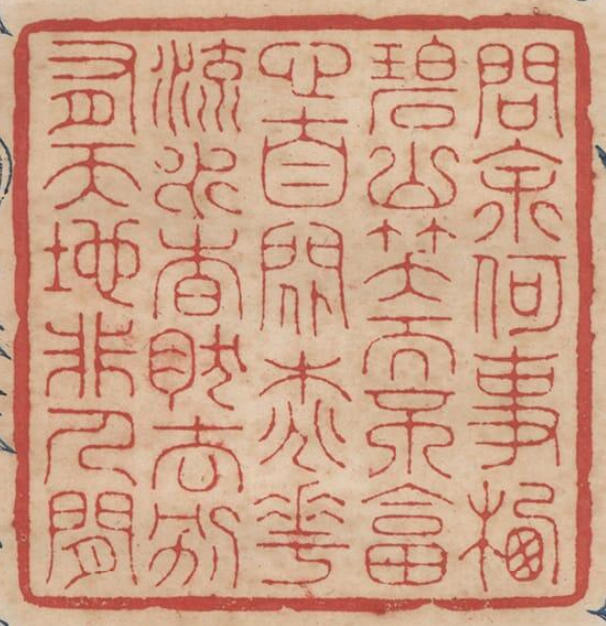 問余何事栖
碧山笑而不畣
心自閑桃花
流水杳然去別
有天地非人閒